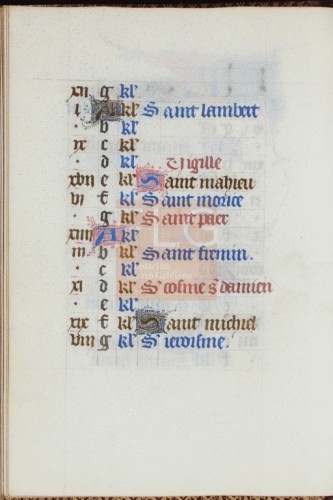 xii g kl
i A kl Saint lambert
b kl
ix c kl
d kl Vigille
xvii e kl Saint mahieu
vi f kl Saint morice
g kl Saint pier
xiiii A kl
iii b kl Saint firmin.
c kl
xi d kl Sᵗ cosme sᵗ damien
e kl
xix f kl Saint michiel
viii g kl Sᵗ ieroisme.